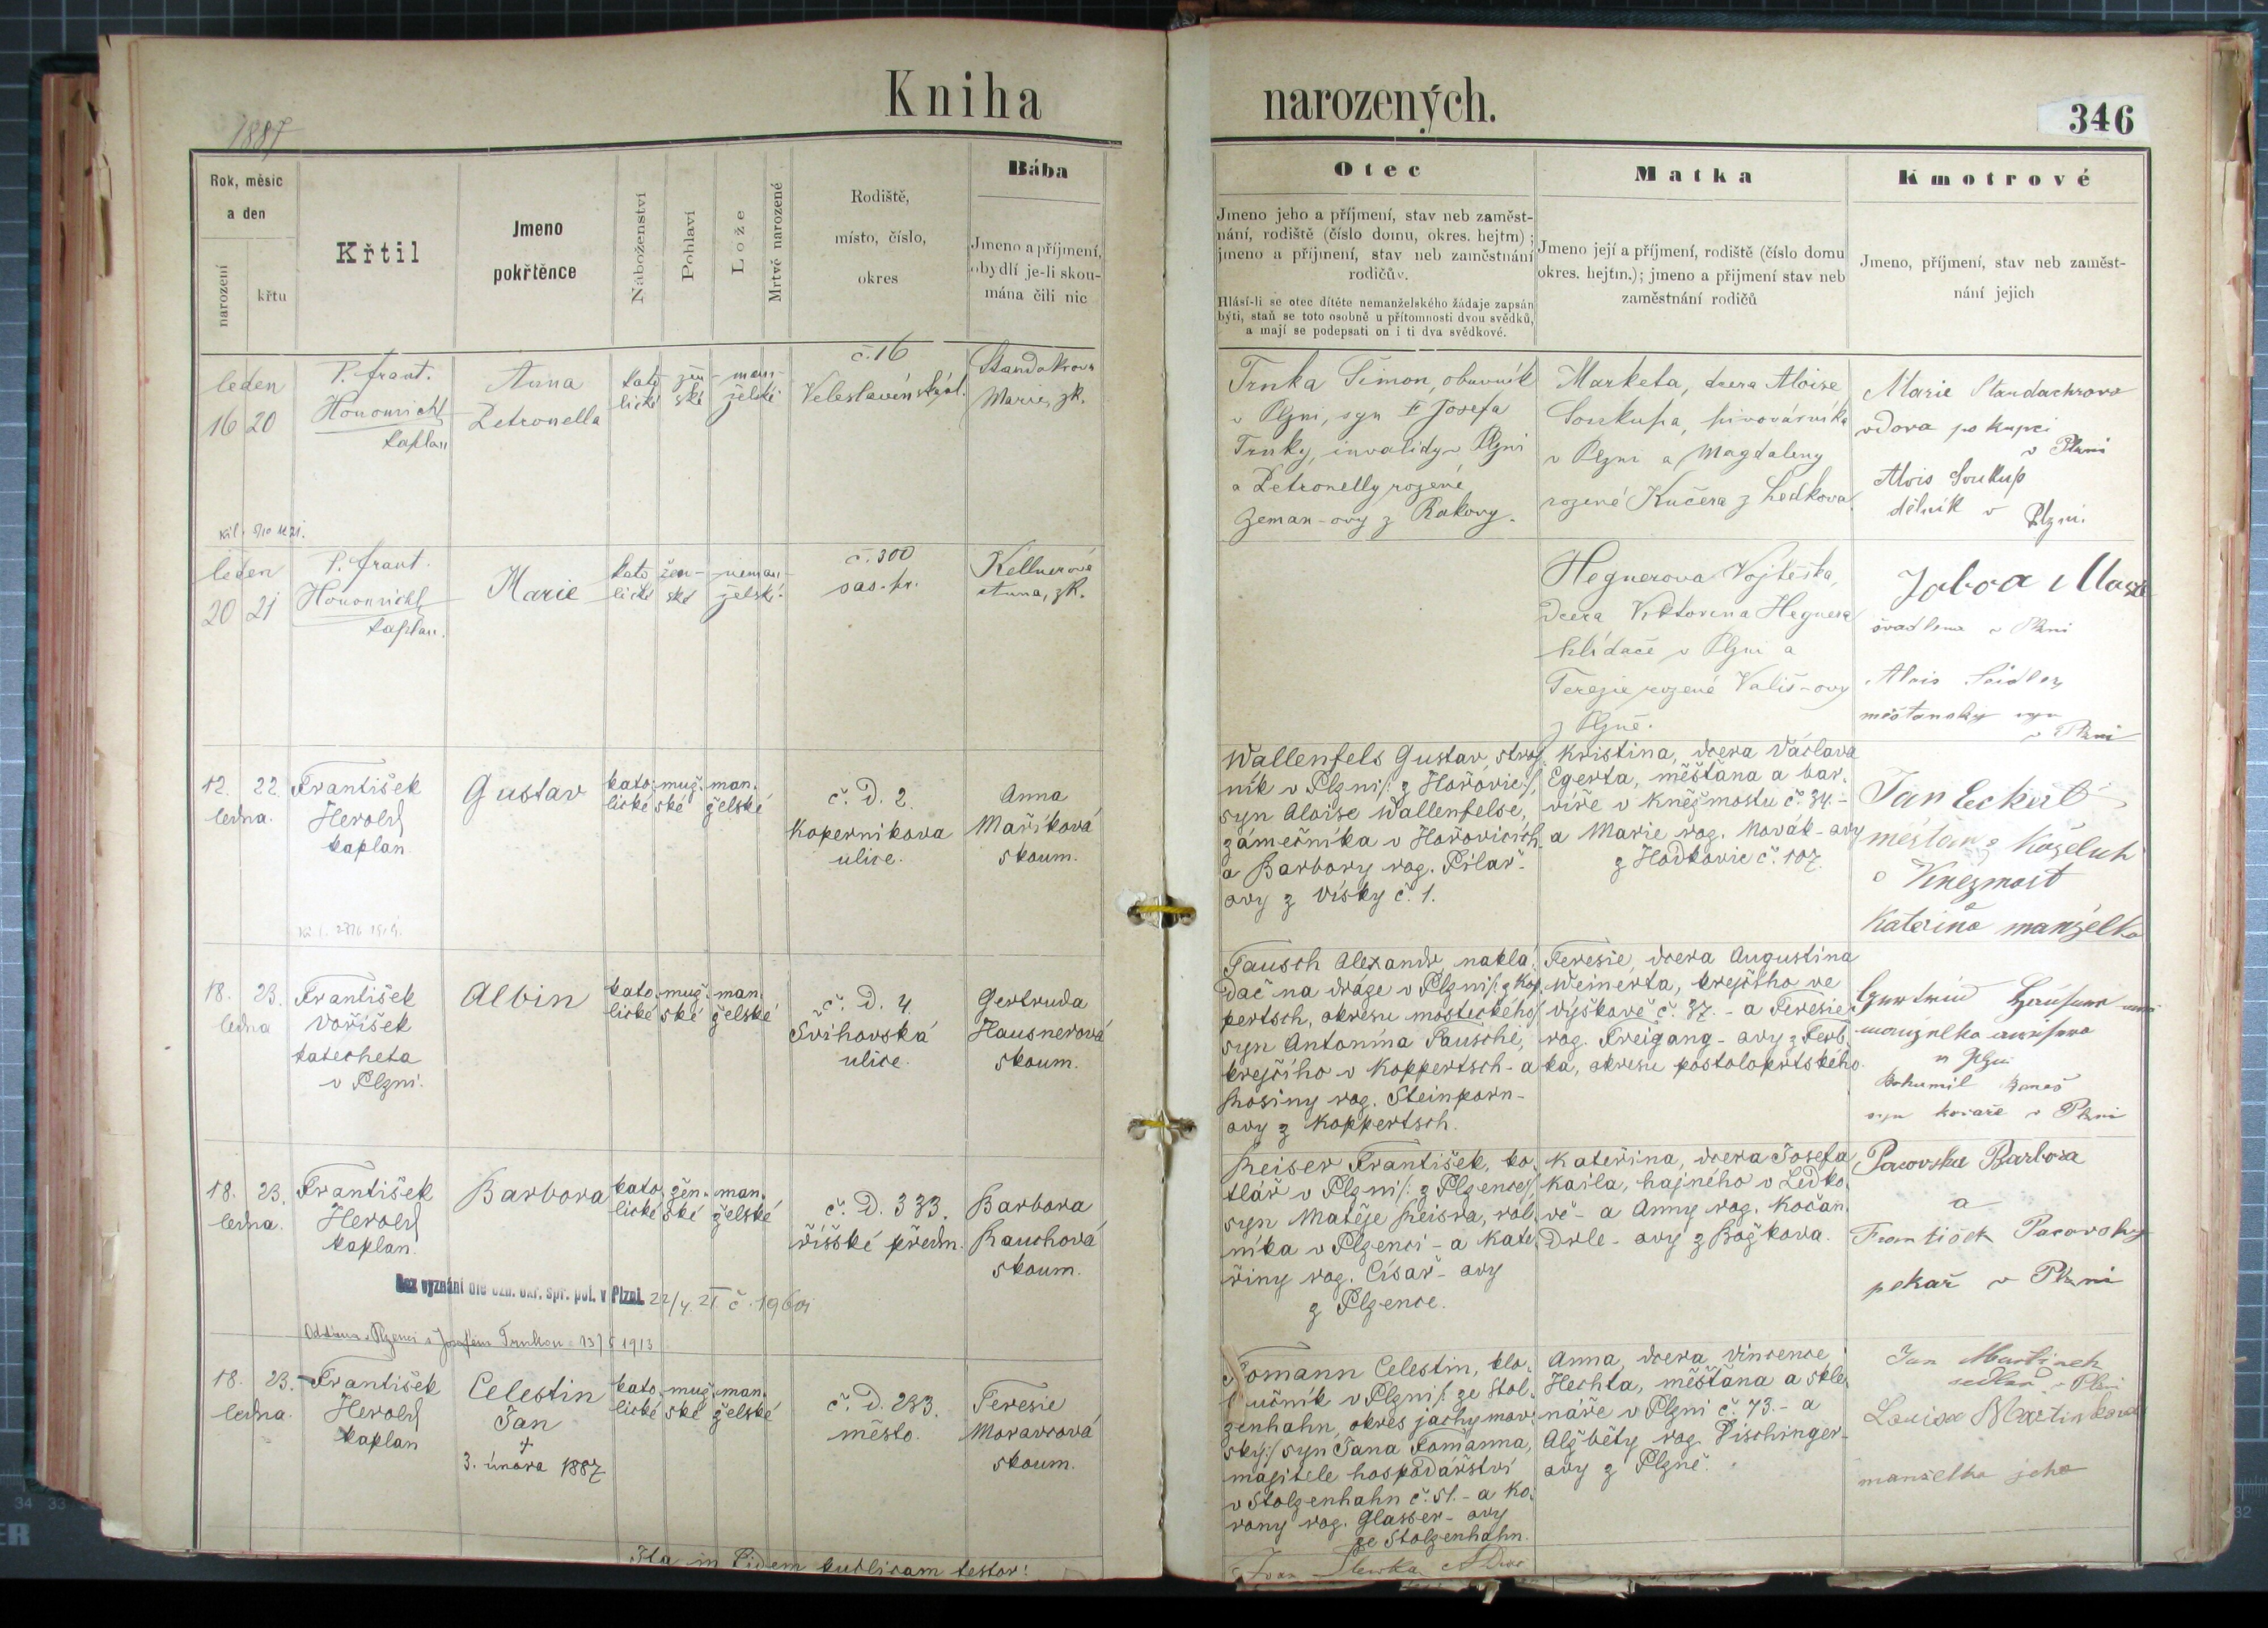 Kniha
narozených.
346
1887
Rok, měsíc
a den
narození
křtu
Křtil
Jmeno
pokřtěnce
Náboženství
Pohlaví
Lože
Mrtvě narozené
Rodiště,
místo, číslo,
okres
Bába
Jmeno a příjmení,
obydlí je-li skou-
mána čili nic
Otec
Jmeno jeho a příjmení, stav neb zaměst-
nání, rodiště (číslo domu, okres. hejtm) ;
jmeno a příjmení, stav neb zaměstnání
rodičův.
Hlásí-li se otec dítěte nemanželského žádaje zapsán
býti, staň se toto osobně u přítomnosti dvou svědků,
a mají se podepsati on i ti dva svědkové.
Matka
Jmeno její a příjmení, rodiště (číslo domu
okres. hejtm.); jmeno a přijmení stav neb
zaměstnání rodičů
Kmotrové
Jmeno, příjmení, stav neb zaměst-
nání jejich
leden
16 20
P. Frant.
Hononicht
kaplan
Anna
Petronella
kato-
lické
žen-
ské
man-
želské
č. 16
Veleslavínská ul.
Standakrova
Marie, zk.
Trnka Šimon, obuvník
v Plzni, syn † Josefa
Trnky, invalidy v Plzni
a Petronelly rozené
Zeman-ovy z Rakovy.
Marketa, dcera Aloise
Soukupa, pivovárníka
v Plzni a Magdaleny
rozené Kučera z Ledkova.
Marie Standachrova
vdova po kupci
v Plzni
Alois Soukup
dělník v Plzni.
leden
20 21
P. Frant.
Hononicht
kaplan.
Marie
kato-
lické
žen-
ské
neman-
želské.
č. 300
sas. př.
Kellnerova
Anna, zk.
Hegnerova Vojtěška,
dcera Viktorina Hegnera
hlídače v Plzni a
Terezie rozené Vališ-ovy
z Plzně.
švadlena v Plzni
Alois
měšťanský syn
v Plzni
12. 22.
ledna.
František
Herold
kaplan
Gustav
kato-
lické
muž-
ské
man-
želské
č. D. 2.
Koperníkova
ulice.
Anna
Maříková
skoum.
Wallenfels Gustav, stroj-
ník v Plzni /: z Hořovic :/,
syn Aloise Wallenfelse,
zámečníka v Hořovicích
a Barbory roz. Pilař-
ovy z Vísky č. 1.
Kristina, dcera Václava
Egerta, měšťana a bar-
víře v Kněžmostu č. 34.-
a Marie roz. Novák-ovy
z Hodkovic č. 107.
Jan Eckert
měšťan a Koželuh
v Knezmost
Kateřina manželka
18. 23.
ledna
František
Voříšek
katecheta
v Plzni.
Albin
kato-
lické
muž-
ské
man-
želské
č. D. 4.
Švihovská
ulice.
Gertruda
Hausnerová
skoum.
Tausch Alexandr, naklá-
dač na dráze v Plzni /: z Kop-
pertsch, okresu mosteckého
syn Antonína Tausche,
krejčího v Koppertsch - a
Rosiny roz. Steinporn-
ovy z Koppertsch.
Teresie, dcera Augustina
Weinerta, krejčího ve
Výškově č. 37. - a Teresie
roz. Freigang-ovy z Ferb-
ka, okresu postoloprtského.
v Plzni
Bohumil Beneš
syn kováře v Plzni
18. 23.
ledna.
František
Herold
kaplan.
Barbora
kato-
lické
žen-
ské
man-
želské
č. D. 333.
říšské předm.
Barbora
Rauchová
skoum.
Reiser František, ko-
tlář v Plzni /: z Plzence :/,
syn Matěje Reisra, rol-
níka v Plzenci - a Kate-
řiny roz. Císař-ovy
z Plzence.
Kateřina, dcera Josefa
Kaila, hajného v Ledko-
vě - a Anny roz. Kočan-
Drle-ovy z Božkova.
Pacovska Barbora
a
František Pacovsky
pekař v Plzni
Bez vyznání dle ozn. okr. spr. pol. v Plzni. 22/4. 21 č. 19601
Oddána v Plzenci s Josefem Trnkou 13/5 1913
18. 23.
ledna.
František
Herold
kaplan
Celestin
Jan
+
3. února 1887
kato-
lické
muž-
ské
man-
želské
č. D. 233.
město.
Teresie
Moravcová
skoum.
Tomann Celestin, klo-
bučník v Plzni /: ze Stol-
zenhahn, okres jáchymov-
ský :/ syn Jana Tomanna,
majitele hospodářství
v Stolzenhahn č. 51. - a Ko-
rony roz. Glasser-ovy
ze Stolzenhahn.
Anna, dcera Vincence
Hechta, měšťana a skle-
náře v Plzni č. 73. - a
Alžběty roz. Pischinger-
ovy z Plzně.
Jan Martinek
sedlář v Plzni
Louisa Martinkova
manželka jeho
Ita in fidem publicam testor!